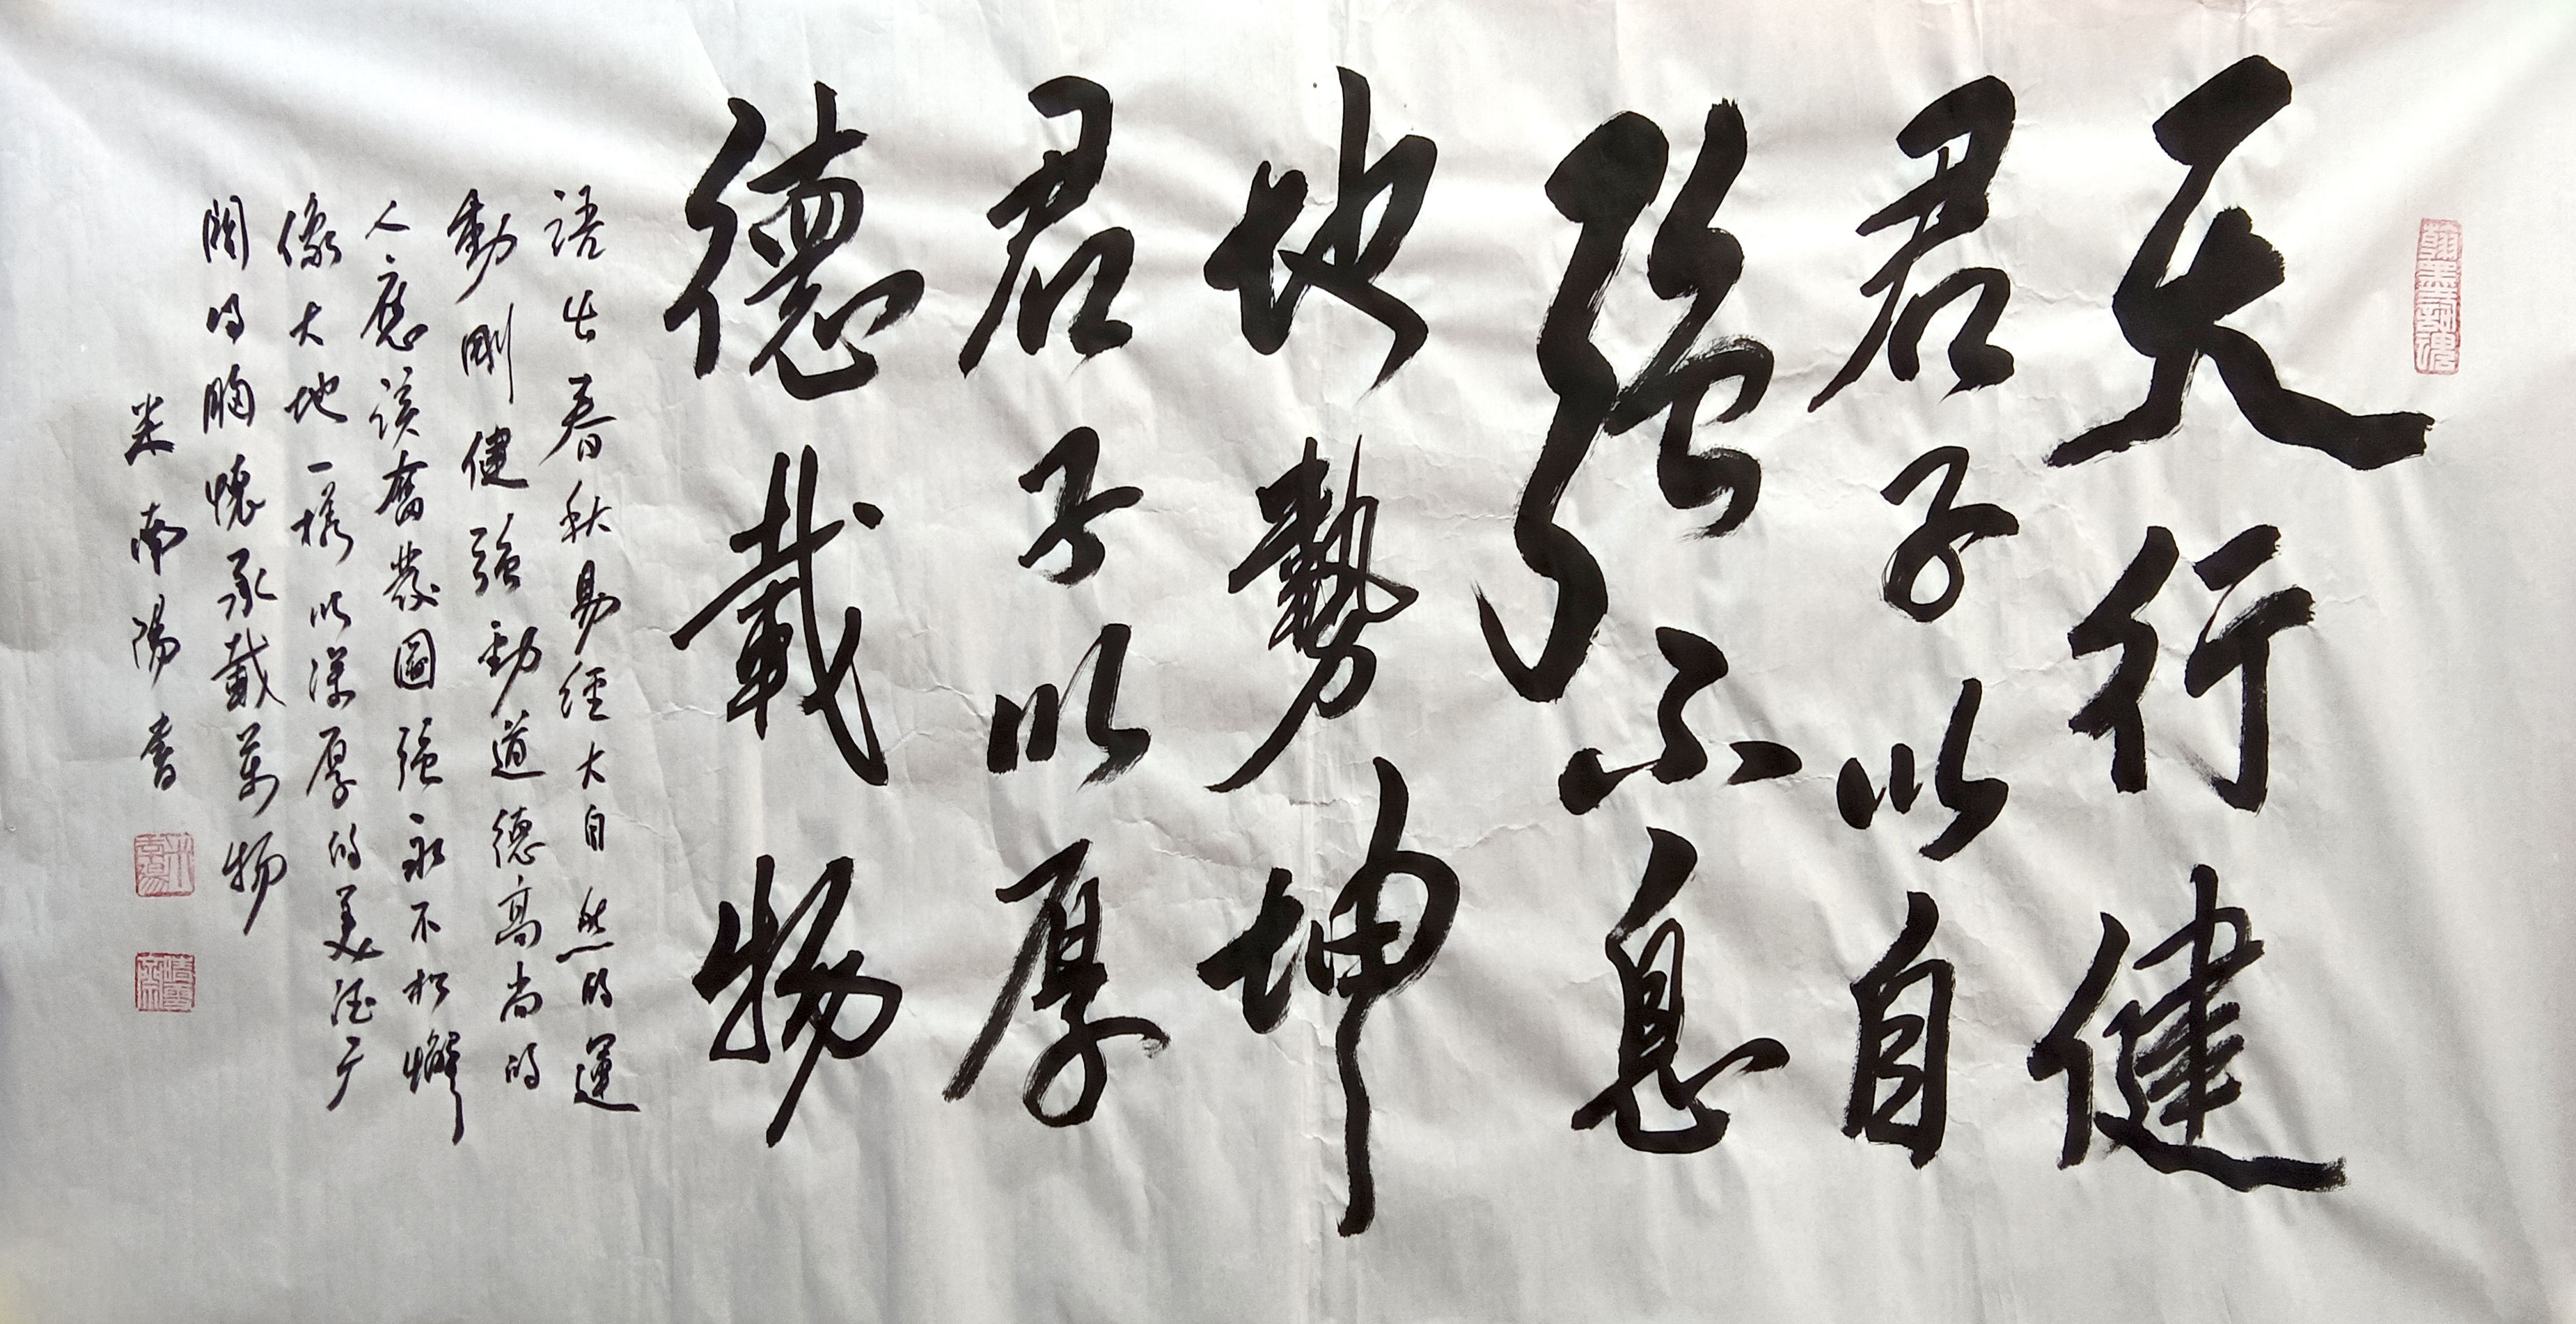 翰墨詩魂
天行健
君子以自
強不息
地勢坤
君子以厚
德載物
語出春秋易經大自然的運
動剛健強勁道德高尚的
人應該奮發圖強永不松懈
像大地一樣以深厚的美德廣
闊的胸懷承載萬物
米南陽書